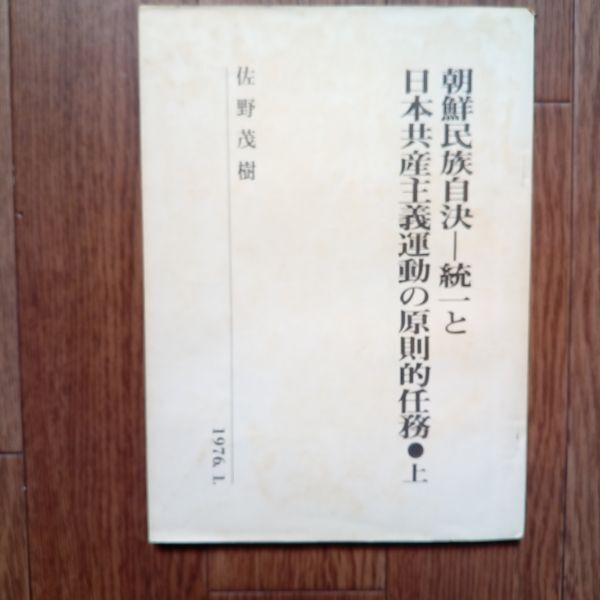 朝鮮民族自決―統一と
日本共産主義運動の原則的任務●上
佐野茂樹
1976.1.